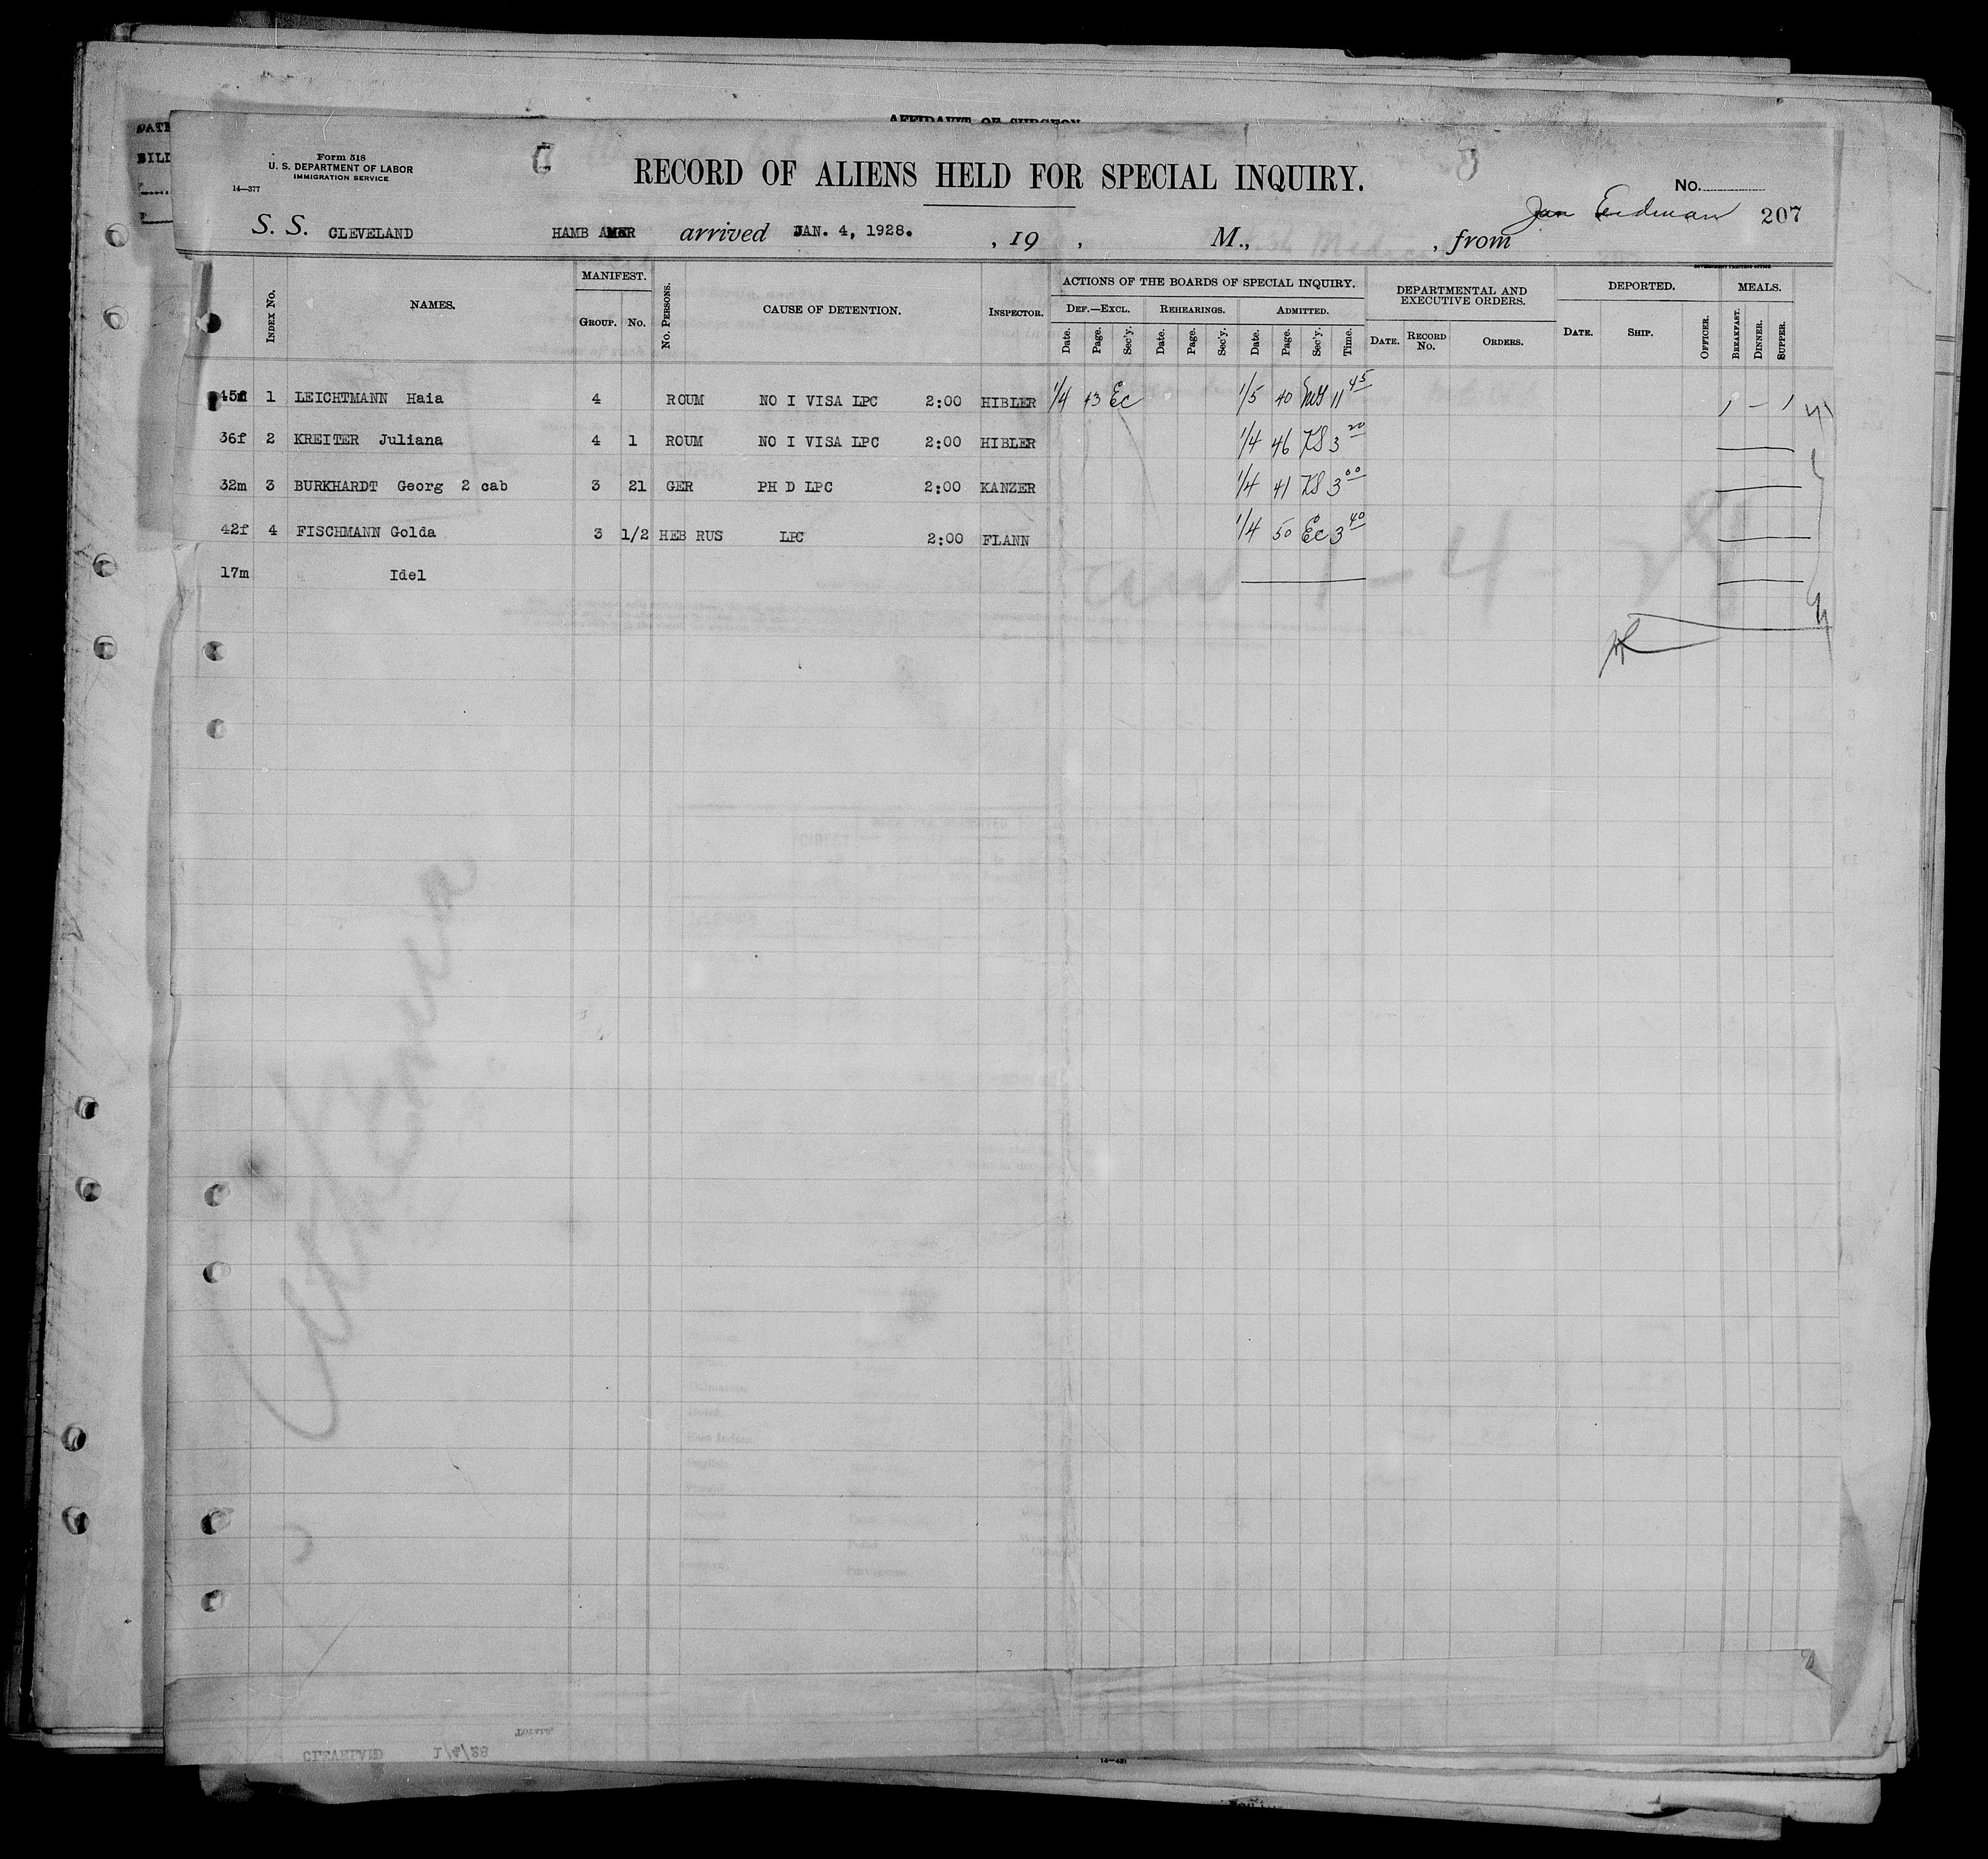 AFFIDAVIT OF SURGEON
Form 518
U. S. DEPARTMENT OF LABOR
IMMIGRATION SERVICE
14—377
RECORD OF ALIENS HELD FOR SPECIAL INQUIRY.
No.
207
S. S. CLEVELAND HAMB AMER arrived JAN. 4, 1928. , 19 , M., , from
INDEX No. NAMES. MANIFEST. GROUP. No. No. PERSONS. CAUSE OF DETENTION. INSPECTOR.
ACTIONS OF THE BOARDS OF SPECIAL INQUIRY.
DEF.—EXCL. REHEARINGS. ADMITTED.
Date. Page. Sec'y. Date. Page. Sec'y. Date. Page. Sec'y. Time.
DEPARTMENTAL AND EXECUTIVE ORDERS.
DATE. RECORD No. ORDERS.
DEPORTED.
DATE. SHIP. OFFICER.
MEALS.
BREAKFAST. DINNER. SUPPER.
45f 1 LEICHTMANN Haia 4 ROUM NO I VISA LPC 2:00 HIBLER 1/4 43 Ec 1/5 40 11 45
36f 2 KREITER Juliana 4 1 ROUM NO I VISA LPC 2:00 HIBLER 1/4 46 KS 3 20
32m 3 BURKHARDT Georg 2 cab 3 21 GER PH D LPC 2:00 KANZER 1/4 41 KS 3 00
42f 4 FISCHMANN Golda 3 1/2 HEB RUS LPC 2:00 FLANN 1/4 50 Ec 3 40
17m Idel
CLEVELAND 1/4/28